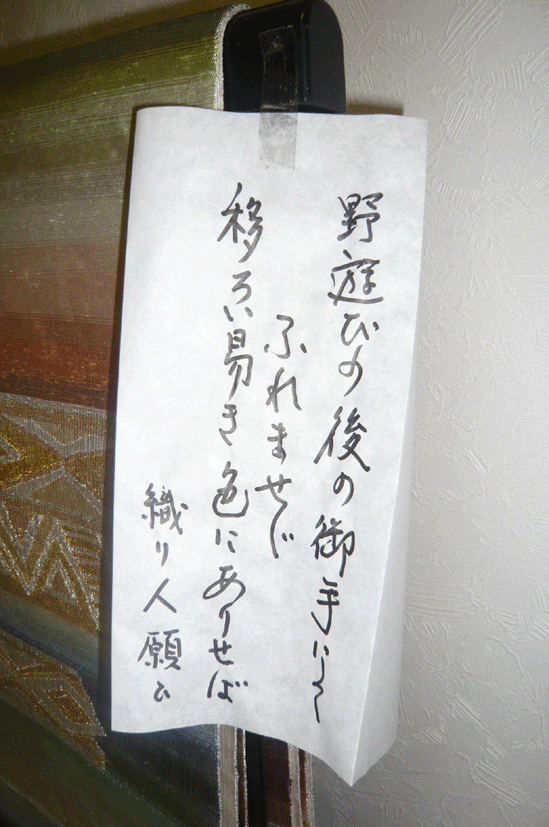 野遊びの後の御手にて
ふれませじ
移ろい易き色にありせば
織り人願ふ